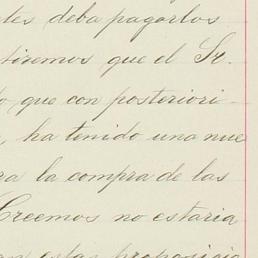 tes deba pagarlos
tiremos que el Sr.
que con posteriori-
, ha tenido una nue
ra la compra de las
Creemos no estaria
estas proposicio